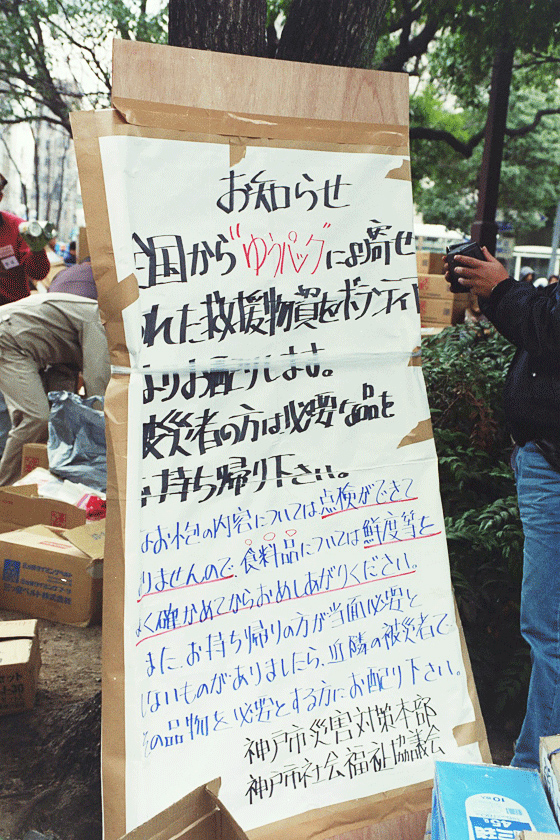 お知らせ
全国から"ゆうパック"により寄せ
られた救援物資をボランティア
よりお配りします。
被災者の方は必要な品を
お持ち帰り下さい。
なお小包の内容については点検ができて
おりませんので、食料品については鮮度等を
よく確かめてからおめしあがりください。
また、お持ち帰りの方が当面必要と
しないものがありましたら、近隣の被災者で
その品物を必要とする方にお配り下さい。
神戸市災害対策本部
神戸市社会福祉協議会
三ツ星ベルト株式会社